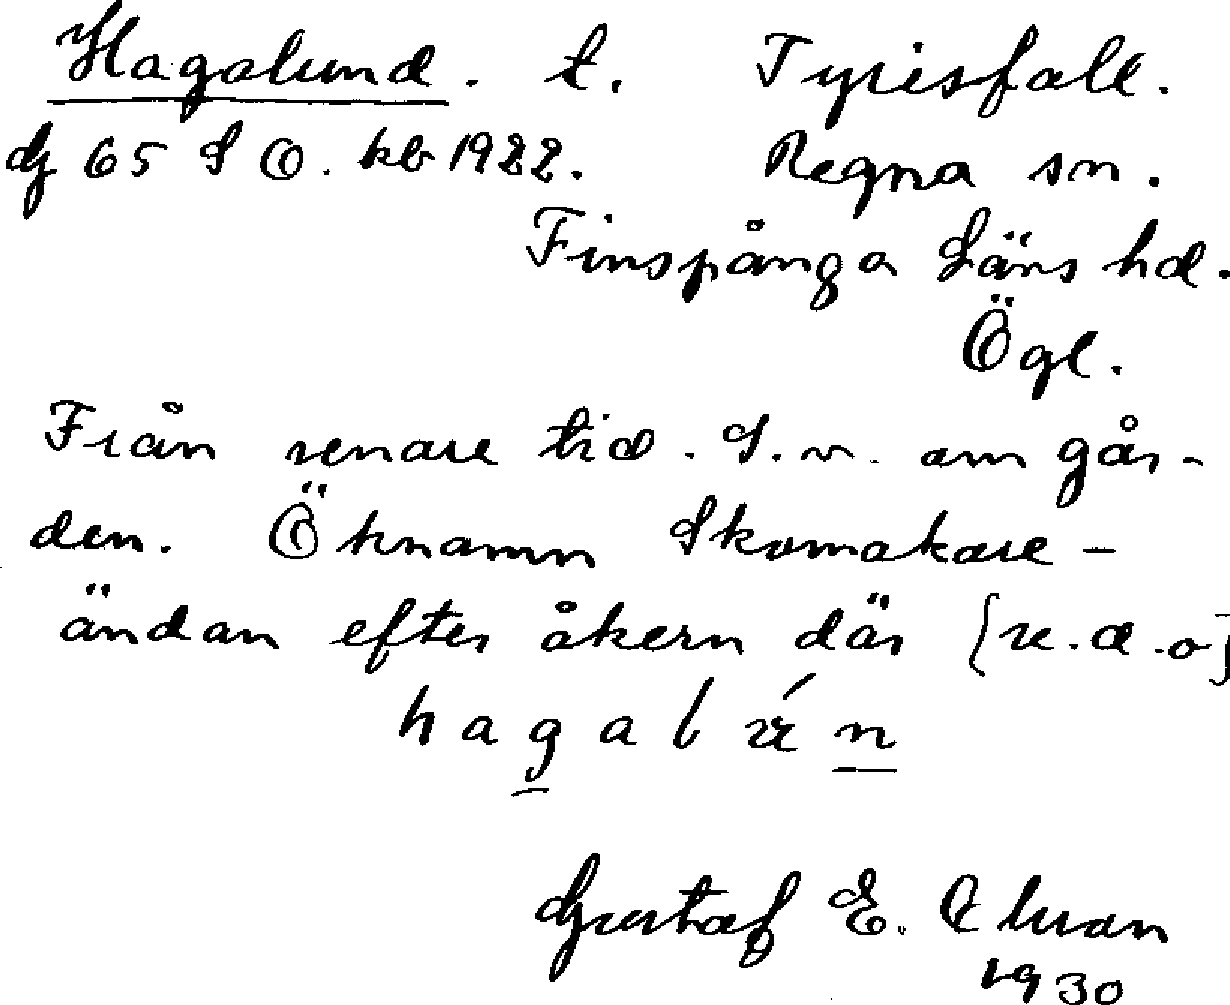 Hagalund. t. Tyrisfall.
G 65 S Ö. kb 1922. Regna sn.
Finspånga Läns hd.
Ögl.
Från senare tid. S. n. om går-
den. Öknamn Skomakare-
ändan efter åkern där {u.d.o}
h a g a l n
Gustaf E. Alman
1930